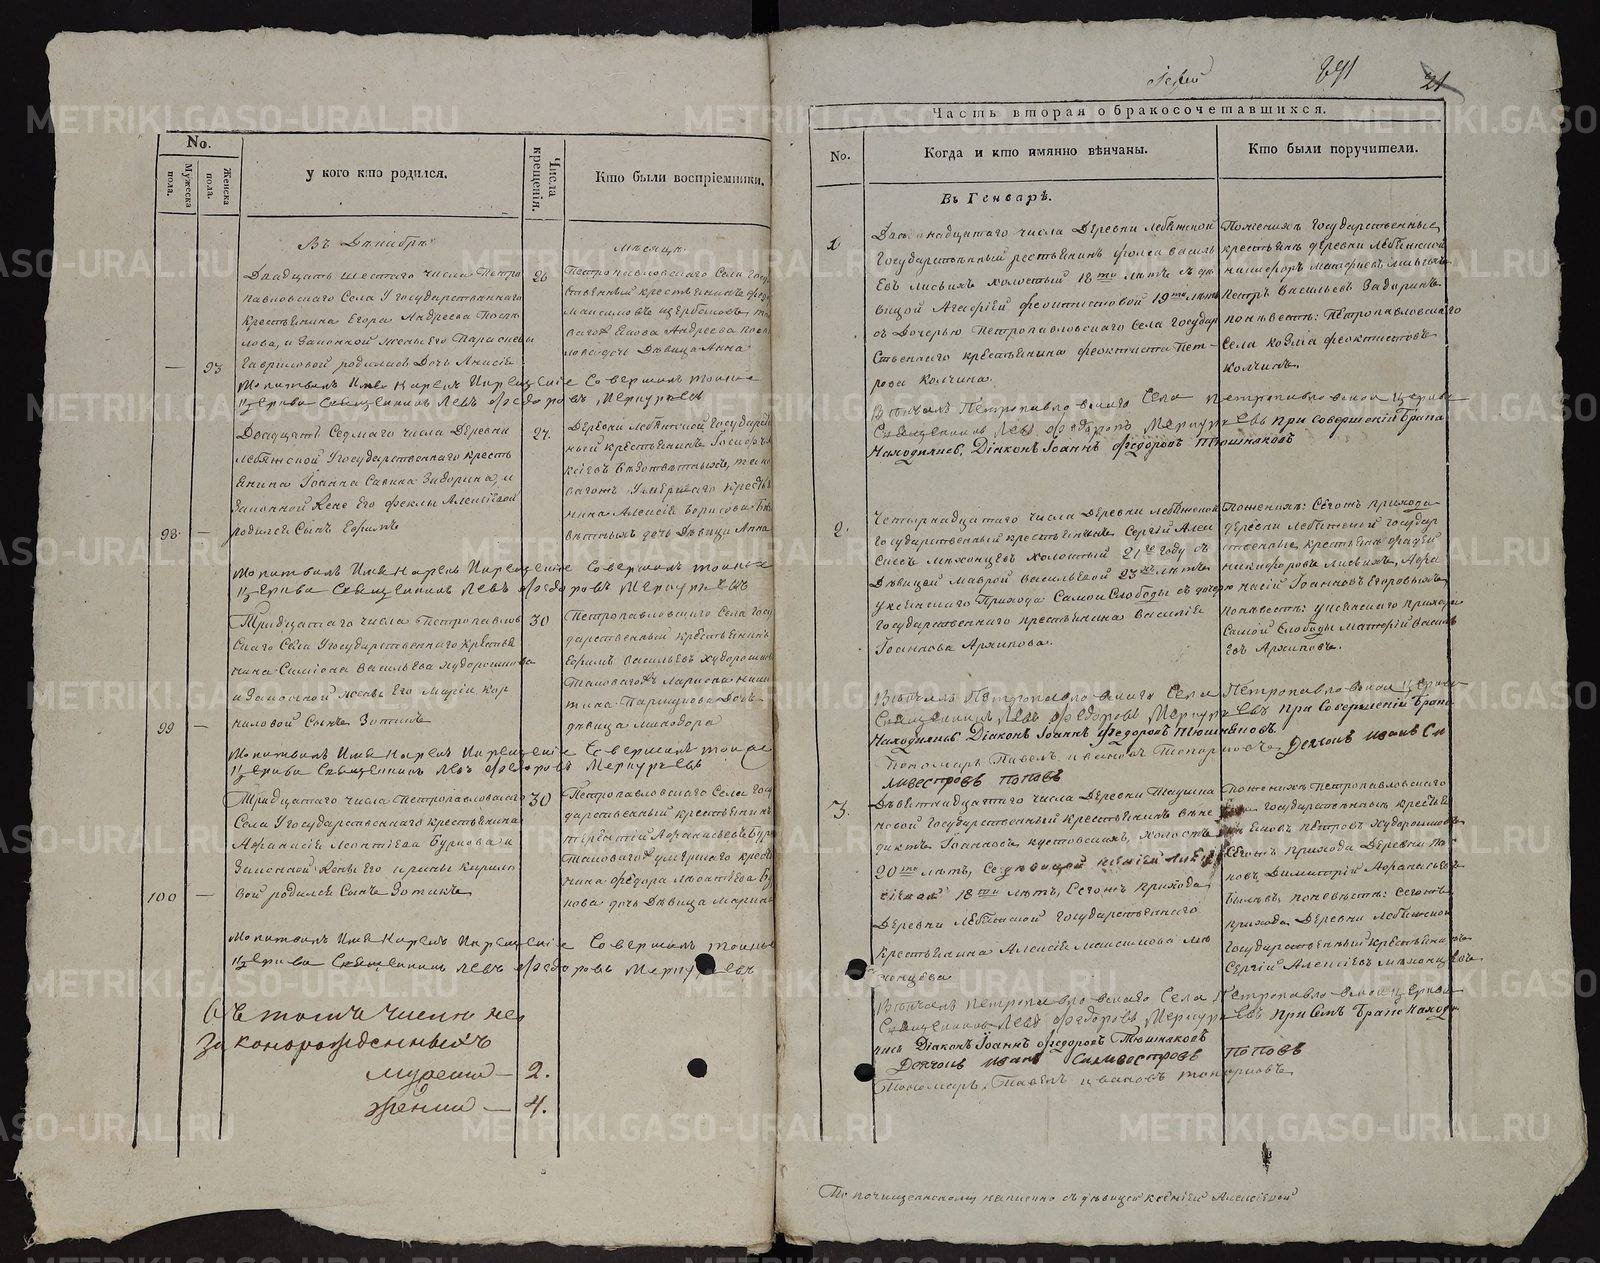 No.
Мужеска пола.
Женска пола.
у кого кто родился.
Числа крещенія.
Кто были воспріемники.
Въ Декабрѣ
месяцѣ
Двадцать шестаго числа Петро
павловскаго Села У государственнаго
крестьянина Егора Андреева Поспе
лова, и Законной жены его Параскевы
Гавриловой родилась Дочь Анисія
93
26
Петропавловскаго Села Госу
ственный крестьянинъ
Максимовъ Щербаковъ
Якова Андреева
дочь Дѣвица Анна
Молитвилъ Имя Нарекъ И крещеніе Совершилъ тоя же
Церкви Священникъ Левъ Ѳедоровъ Меркурьевъ
Двадцать Седмаго числа Деревни
Лебяжской У государственнаго кресть
янина Іоанна Савина Задорина, и
Законной жене Его Феклы Алексіевой
родился Сынъ Ефимъ
98.
27.
Деревни Лебяжской Государ
ный крестьянинъ
Умершаго крестья
нина Алексія Борисова
дочь Дѣвица Анна
Молитвилъ Имя Нарекъ И крещеніе Совершилъ тоя же
Церкви Священникъ Левъ Ѳедоровъ Меркурьевъ
Тридцатаго числа Петропавлов
скаго Села У государственнаго крестья
нина Симіона Васильева Худорошкова
и Законной жены Его Маріи Кор
ниловой Сынъ Зотикъ
99
30
Петропавловскаго Села Госу
дарственный крестьянинъ
Ефимъ Васильевъ Худорошк
Таковагожъ Лариона
дочь
дѣвица Минодора
Молитвилъ Имя Нарекъ И крещеніе Совершилъ тоя же
Церкви Священникъ Левъ Ѳедоровъ Меркурьевъ
Тридцатаго числа Петропавловскаго
Села У государственнаго крестьянина
Афанасія Леонтіева Буркова и
Законной жены Его Ирины Кирило
вой родился Сынъ Зотикъ
100
30
Петропавловскаго Села Госу
дарственный крестьянинъ
Терентій Афанасьевъ Бур
Таковагожъ умершаго кресть
нина Ѳедора Леонтьева Бур
кова дочь Дѣвица Марина
Молитвилъ Имя Нарекъ И крещеніе Совершилъ тоя же
Церкви Священникъ Левъ Ѳедоровъ Меркурьевъ
Въ томъ числѣ не
законорожденныхъ
мужеска — 2.
женска — 4.
291
21
Часть вторая о бракосочетавшихся.
No.
Когда и кто имянно вѣнчаны.
Кто были поручители.
Въ Генварѣ.
1
числа Деревни Лебяжской
Государственный крестьянинъ Фока Василь
евъ Лисьихъ холостый 18ти лѣтъ съ дѣ
вицой Агафіей Феоктистовой 19ти лѣтъ
съ Дочерью Петропавловскаго Села Государ
ственнаго крестьянина Феоктиста Пет-
рова Колчина.
По женихѣ Государственные
крестьяне деревни Лебяжской
Никифоръ Матфіевъ Лисьихъ
Петръ Васильевъ Задоринъ
по невестѣ: Петропавловскаго
Села Козма Феоктистовъ
Колчинъ.
Вѣнчалъ Петропавловскаго Села Петропавловской церкви
Священникъ Левъ Ѳедоровъ Меркурьевъ при совершеніи Брака
Находились, Діаконъ Іоаннъ Ѳедоровъ Тюшняковъ
2.
Четырнадцатаго числа Деревни Лебяжской
Государственный крестьянинъ Сергій Алек
сіевъ Мехонцевъ холостый 21го году съ
Дѣвицей Маврой Васильевой 23хъ лѣтъ
Уксянскаго Прихода Самой Слободы съ дочерю
Государственнаго крестьянина Василія
Іоаннова Архипова.
По женихѣ: Сегожъ прихода
деревни Лебяжской государ
ственные крестьяне Фадей
Никифоровъ Лисьихъ, Афа
насій Іоанновъ Егоровыхъ
по невестѣ: Уксянскаго прихода
Самой Слободы Матфій Василь
евъ Архиповъ.
Вѣнчалъ Петропавловскаго Села Петропавловской церкви
Священникъ Левъ Ѳедоровъ Меркурьевъ при Совершеніи Брака
Находились Діаконъ Іоаннъ Ѳедоровъ Тюшняковъ.
Пономарь Павелъ Ивановъ Топорковъ Дьячокъ Иванъ Си
ливестровъ Поповъ
3.
Девятнадцатаго числа Деревни
новой Государственный крестьянинъ Вене
диктъ Іоанновъ холостъ
20ти лѣтъ, Со дѣвицой
18ти лѣтъ, Сегожъ прихода
Деревни Лебяжской государственнаго
крестьянина Алексія Максимова Ме
хонцева
По женихѣ Петропавловскаго
Села государственной крестья
нинъ Яковъ Петровъ Худорошковъ
Сегожъ прихода Деревни
Димитрій Афанасьевъ
по невѣстѣ: Сегожъ
прихода Деревни Лебяжской
Государственный крестьянинъ
Сергій Алексіевъ Мехонцевъ
Вѣнчалъ Петропавловскаго Села Петропавловской церкви
Священникъ Левъ Ѳедоровъ Меркурьевъ при Семъ Бракѣ Находи
лись Діаконъ Іоаннъ Ѳедоровъ Тюшняковъ
Дьячокъ Иванъ Силивестровъ Поповъ
Пономарь Павелъ Ивановъ Топорковъ
По почищенному написано съ дѣвицей Ксеніей Алексіевой
METRIKI.GASO-URAL.RU